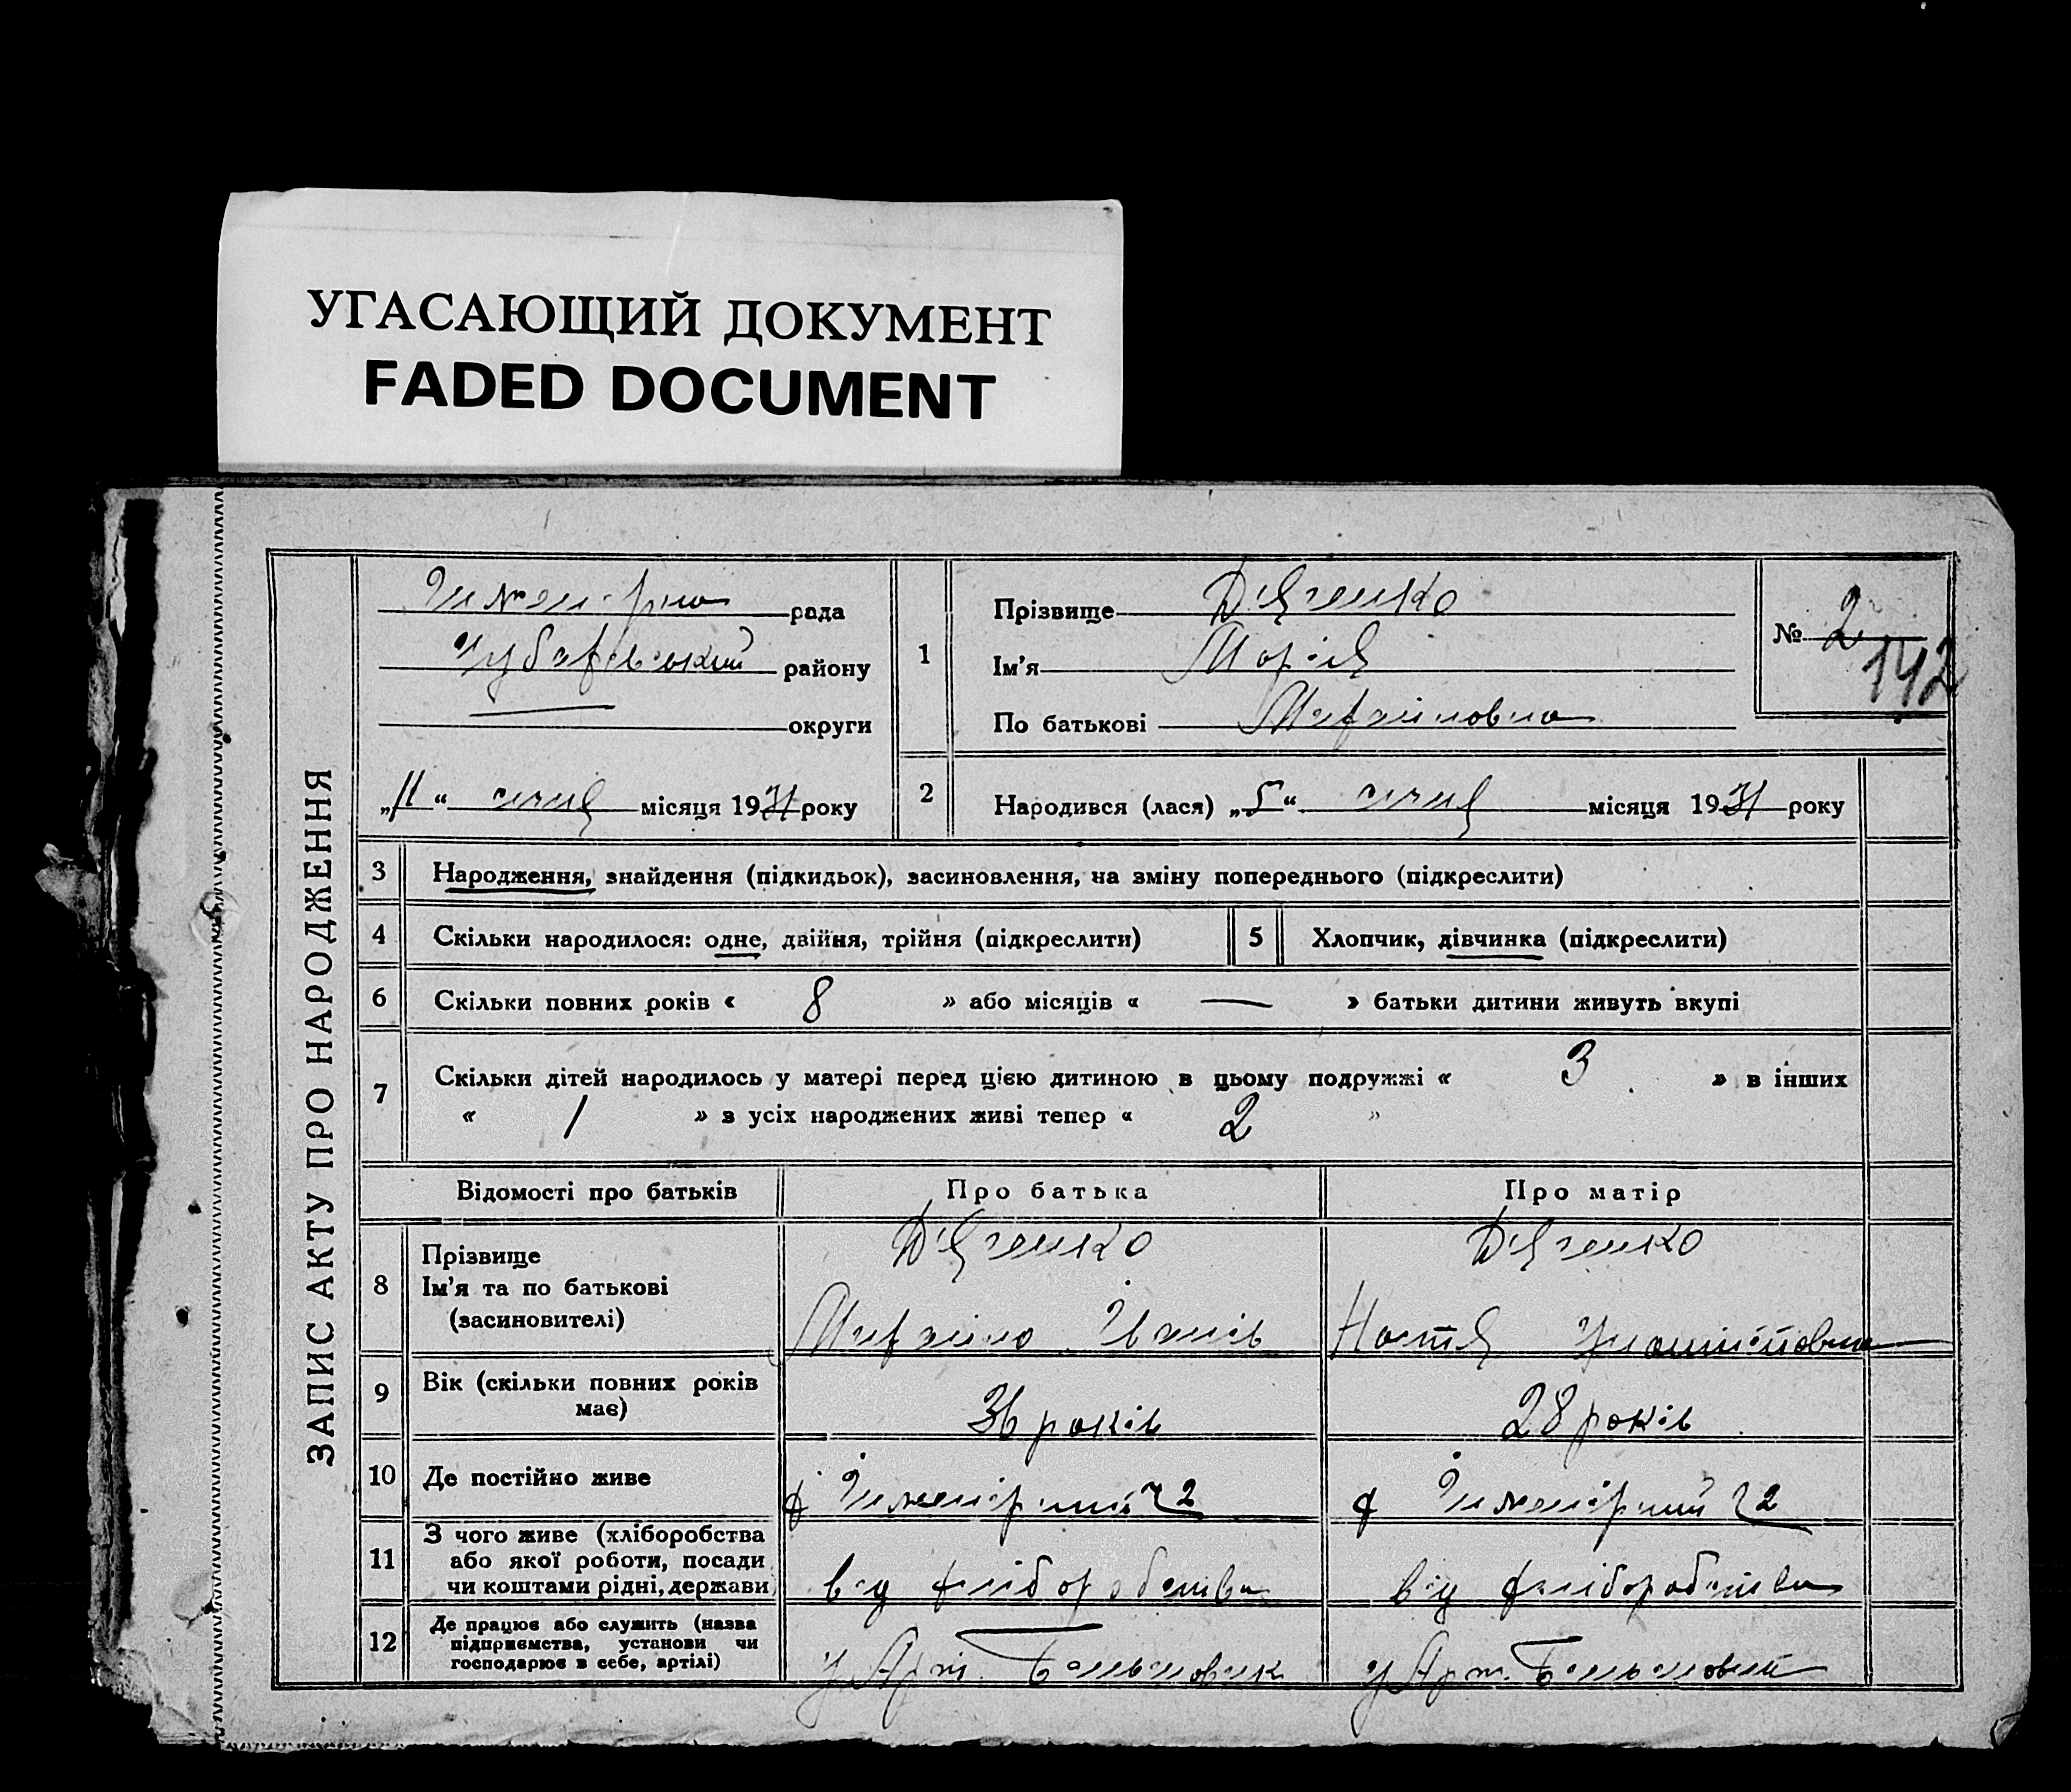 УГАСАЮЩИЙ ДОКУМЕНТ
FADED DOCUMENT
ЗАПИС АКТУ ПРО НАРОДЖЕННЯ
рада
Чубарівський району
округи
„11“ січня місяця 1931 року
1
Прізвище Д'яченко
Ім'я Марія
По батькові Михайловна
№ 2
142
2
Народився (лася) „5“ січня місяця 1931 року
3 Народження, знайдення (підкидьок), засиновлення, на зміну попереднього (підкреслити)
4 Скільки народилося: одне, двійня, трійня (підкреслити)
5 Хлопчик, дівчинка (підкреслити)
6 Скільки повних років « 8 » або місяців « — » батьки дитини живуть вкупі
7 Скільки дітей народилось у матері перед цією дитиною в цьому подружжі « 3 » в інших
« 1 » з усіх народжених живі тепер « 2 »
Відомості про батьків Про батька Про матір
8 Прізвище
Ім'я та по батькові
(засиновителі)
Д'яченко Д'яченко
Михайло Іванів Настя
9 Вік (скільки повних років
має)
36 років 28 років
10 Де постійно живе
х Інженірний ч 2 х Інженірний ч 2
11 З чого живе (хліборобства
або якої роботи, посади
чи коштами рідні, держави
від хліборобства від хліборобства
12 Де працює або служить (назва
підприємства, установи чи
господарює в себе, артілі)
у Арт. Большовик у Арт. Большовик